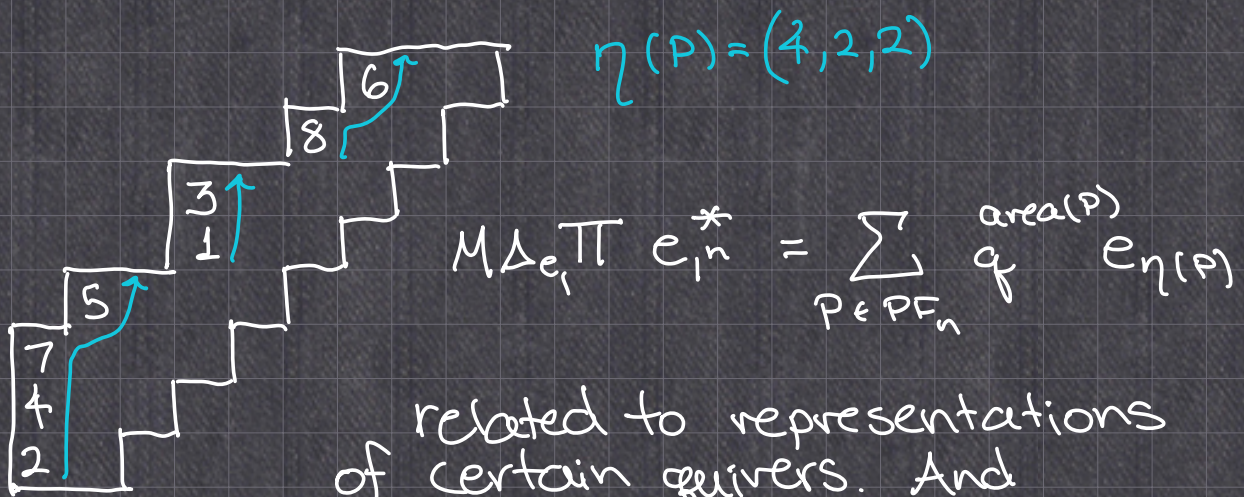 6
η(P) = (4,2,2)
8
3
1
MΔ_{e_1} Π e_{1^n}^* = Σ_{P∈PF_n} q^{area(P)} e_{η(P)}
5
7
4
2
related to representations
of certain quivers. And